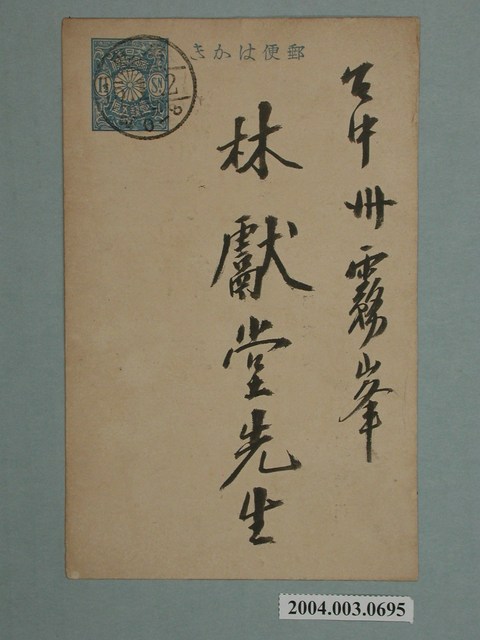 郵便はかき
台中州霧峯
林獻堂先生
2004.003.0695